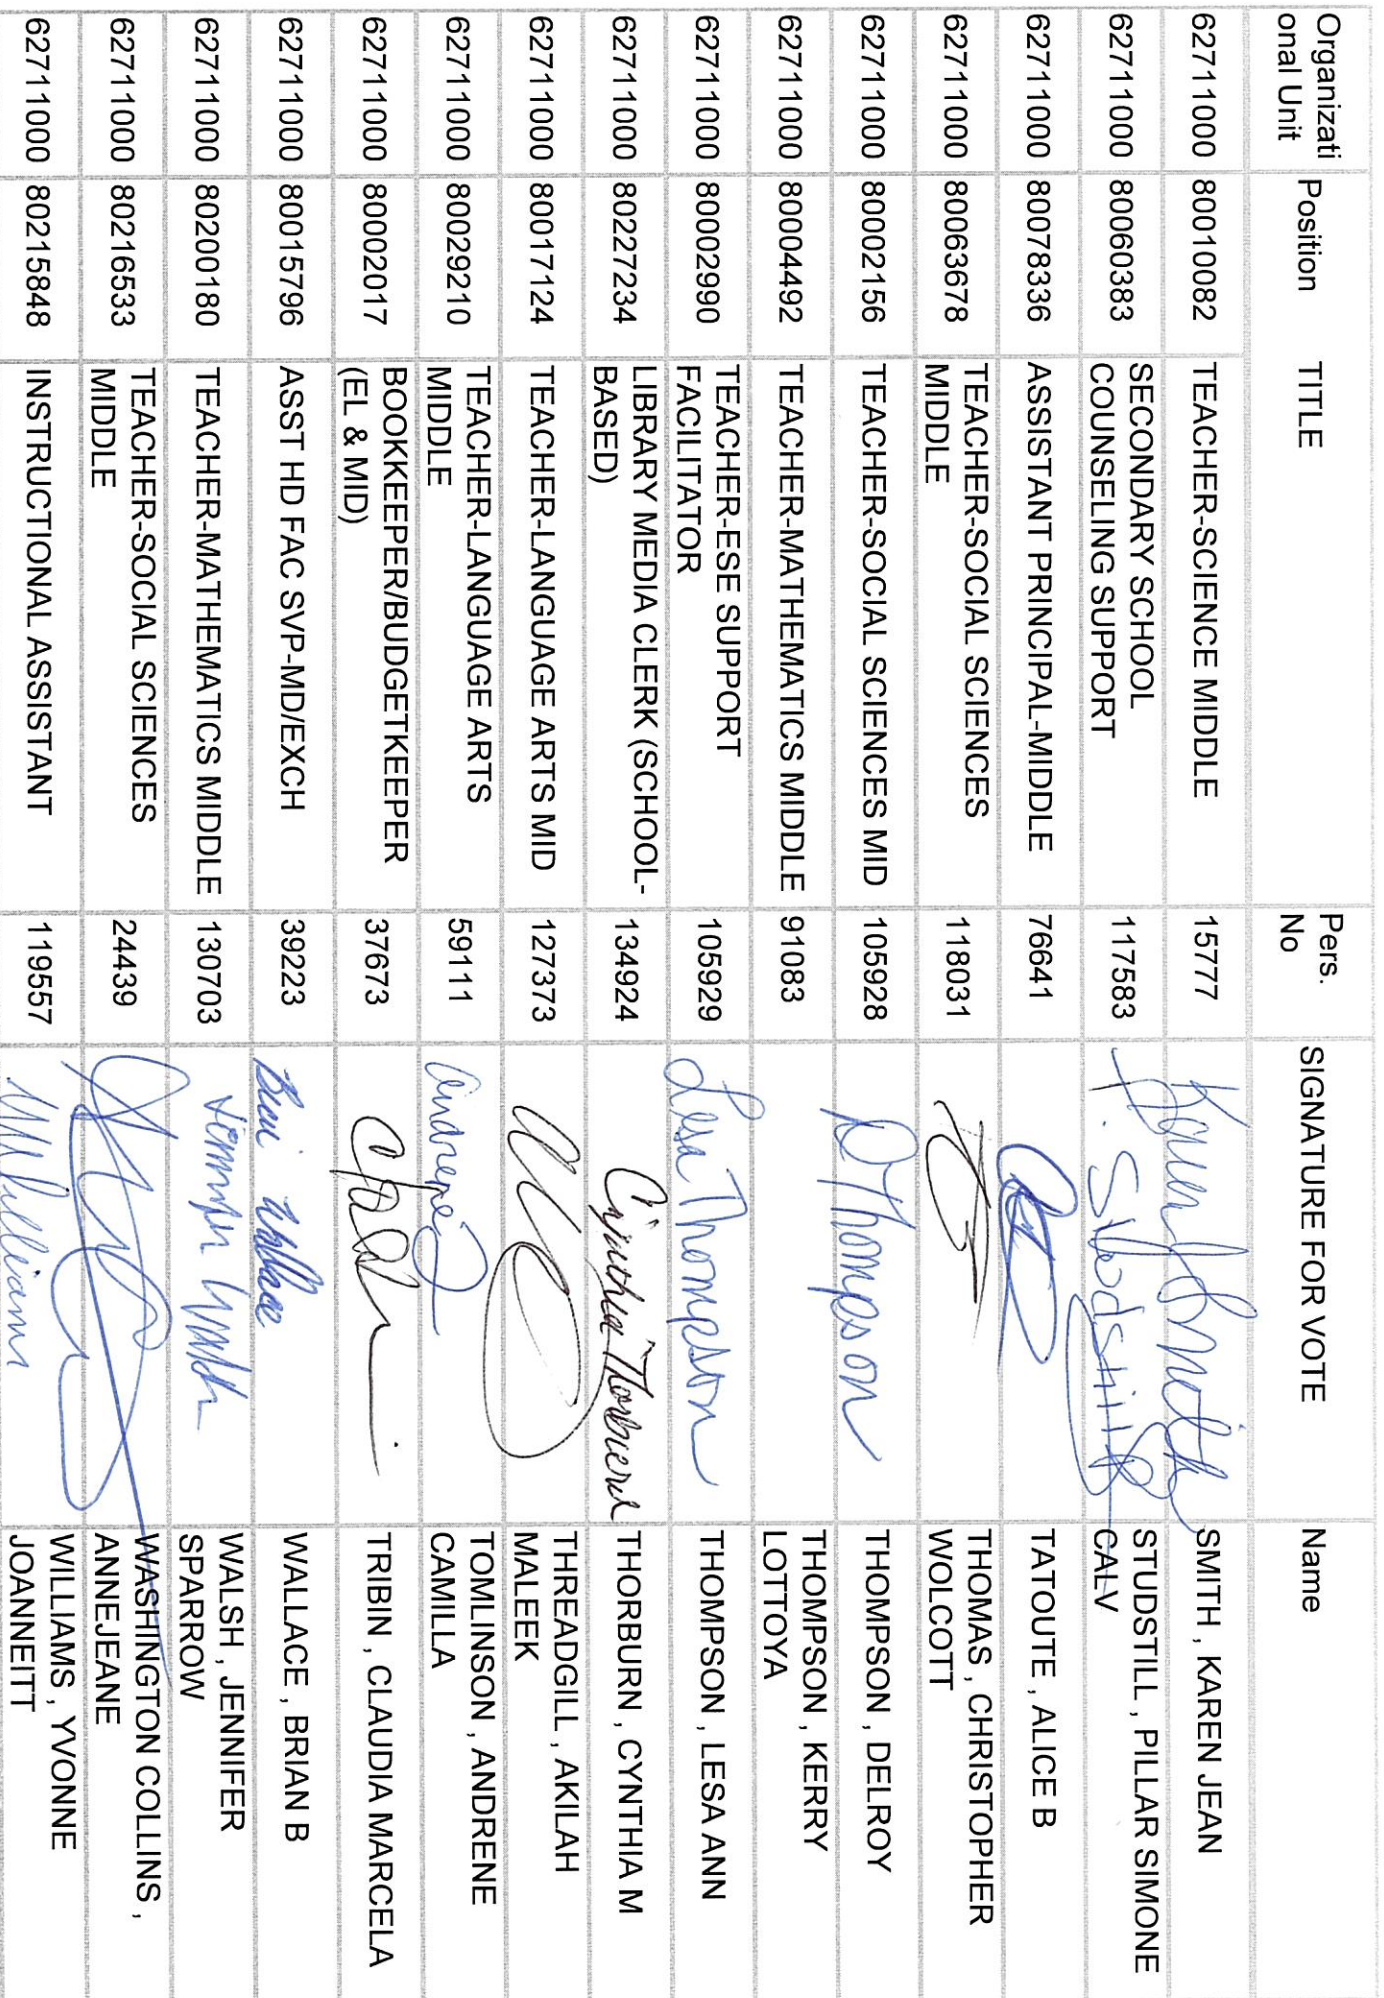 Organizati
onal Unit
Position
TITLE
Pers.
No
SIGNATURE FOR VOTE
Name
62711000 80010082 TEACHER-SCIENCE MIDDLE 15777 Karen J Smith SMITH , KAREN JEAN
62711000 80060383 SECONDARY SCHOOL
COUNSELING SUPPORT 117583 P. Studstill STUDSTILL , PILLAR SIMONE
CALV
62711000 80078336 ASSISTANT PRINCIPAL-MIDDLE 76641 TATOUTE , ALICE B
62711000 80063678 TEACHER-SOCIAL SCIENCES
MIDDLE 118031 THOMAS , CHRISTOPHER
WOLCOTT
62711000 80002156 TEACHER-SOCIAL SCIENCES MID 105928 D Thompson THOMPSON , DELROY
62711000 80004492 TEACHER-MATHEMATICS MIDDLE 91083 THOMPSON , KERRY
LOTTOYA
62711000 80002990 TEACHER-ESE SUPPORT
FACILITATOR 105929 Lesa Thompson THOMPSON , LESA ANN
62711000 80227234 LIBRARY MEDIA CLERK (SCHOOL-
BASED) 134924 Cynthia THORBURN , CYNTHIA M
62711000 80017124 TEACHER-LANGUAGE ARTS MID 127373 THREADGILL , AKILAH
MALEEK
62711000 80029210 TEACHER-LANGUAGE ARTS
MIDDLE 59111 Andrene TOMLINSON , ANDRENE
CAMILLA
62711000 80002017 BOOKKEEPER/BUDGETKEEPER
(EL & MID) 37673 TRIBIN , CLAUDIA MARCELA
62711000 80015796 ASST HD FAC SVP-MD/EXCH 39223 Wallace WALLACE , BRIAN B
62711000 80200180 TEACHER-MATHEMATICS MIDDLE 130703 Jennifer Walsh WALSH , JENNIFER
SPARROW
62711000 80216533 TEACHER-SOCIAL SCIENCES
MIDDLE 24439 WASHINGTON COLLINS ,
ANNEJEANE
62711000 80215848 INSTRUCTIONAL ASSISTANT 119557 WILLIAMS , YVONNE
JOANNEITT